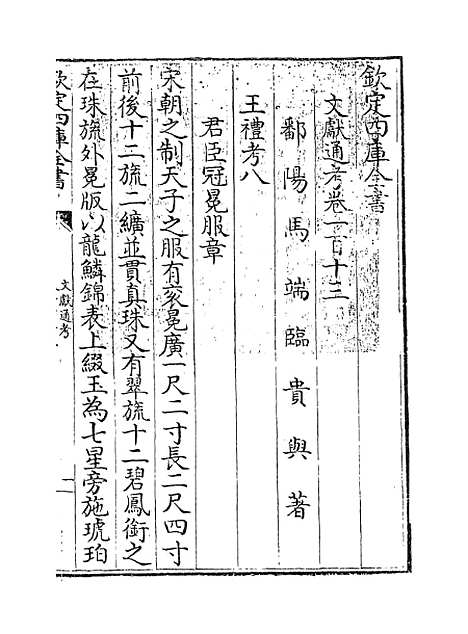 欽定四庫全書
文獻通考卷一百十三
鄱陽馬端臨貴與著
王禮考八
君臣冠冕服章
宋朝之制天子之服有衮冕廣一尺二寸長二尺四寸
前後十二旒二纊並貫真珠又有翠旒十二碧鳳銜之
在珠旒外冕版以龍鱗錦表上綴玉為七星旁施琥珀
欽定四庫全書
文獻通考